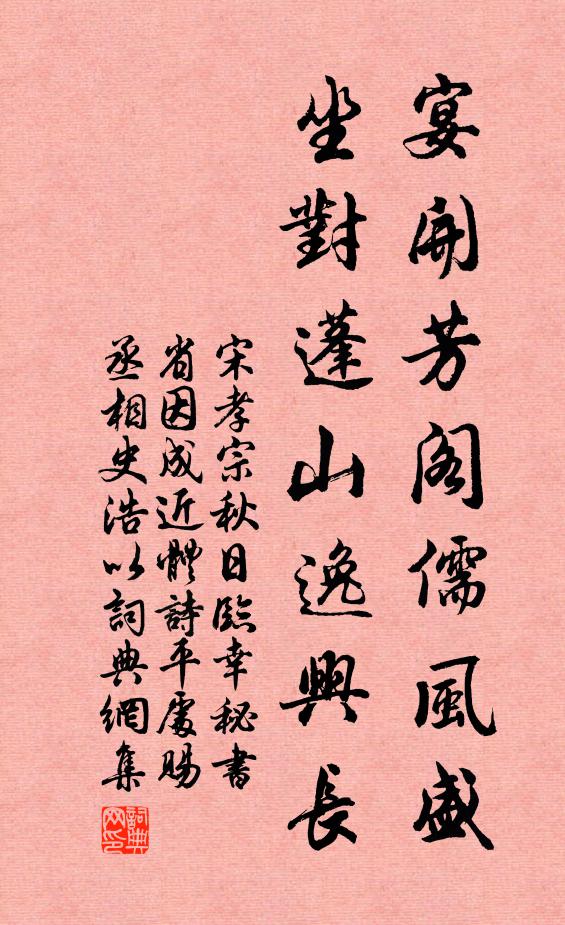 宴開芳閣儒風盛
坐對蓬山逸興長
宋孝宗秋日臨幸秘書
省因成近體詩平處賜
丞相史浩以詞典網集
詞典网印